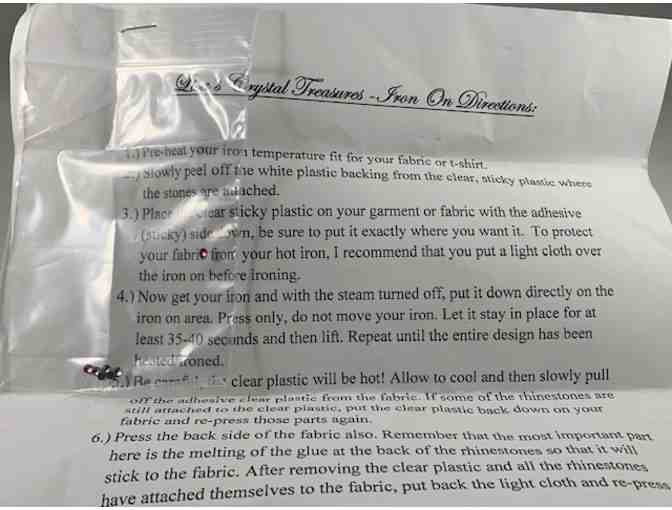 Crystal Treasures - Iron On Directions:
1.) Pre-heat your iron temperature fit for your fabric or t-shirt.
2.) Slowly peel off the white plastic backing from the clear, sticky plastic where
the stones are attached.
3.) Place clear sticky plastic on your garment or fabric with the adhesive
(sticky) side down, be sure to put it exactly where you want it. To protect
your fabric from your hot iron, I recommend that you put a light cloth over
the iron on before ironing.
4.) Now get your iron and with the steam turned off, put it down directly on the
iron on area. Press only, do not move your iron. Let it stay in place for at
least 35-40 seconds and then lift. Repeat until the entire design has been
heated/ironed.
5.) Be careful, the clear plastic will be hot! Allow to cool and then slowly pull
off the adhesive clear plastic from the fabric. If some of the rhinestones are
still attached to the clear plastic, put the clear plastic back down on your
fabric and re-press those parts again.
6.) Press the back side of the fabric also. Remember that the most important part
here is the melting of the glue at the back of the rhinestones so that it will
stick to the fabric. After removing the clear plastic and all the rhinestones
have attached themselves to the fabric, put back the light cloth and re-press